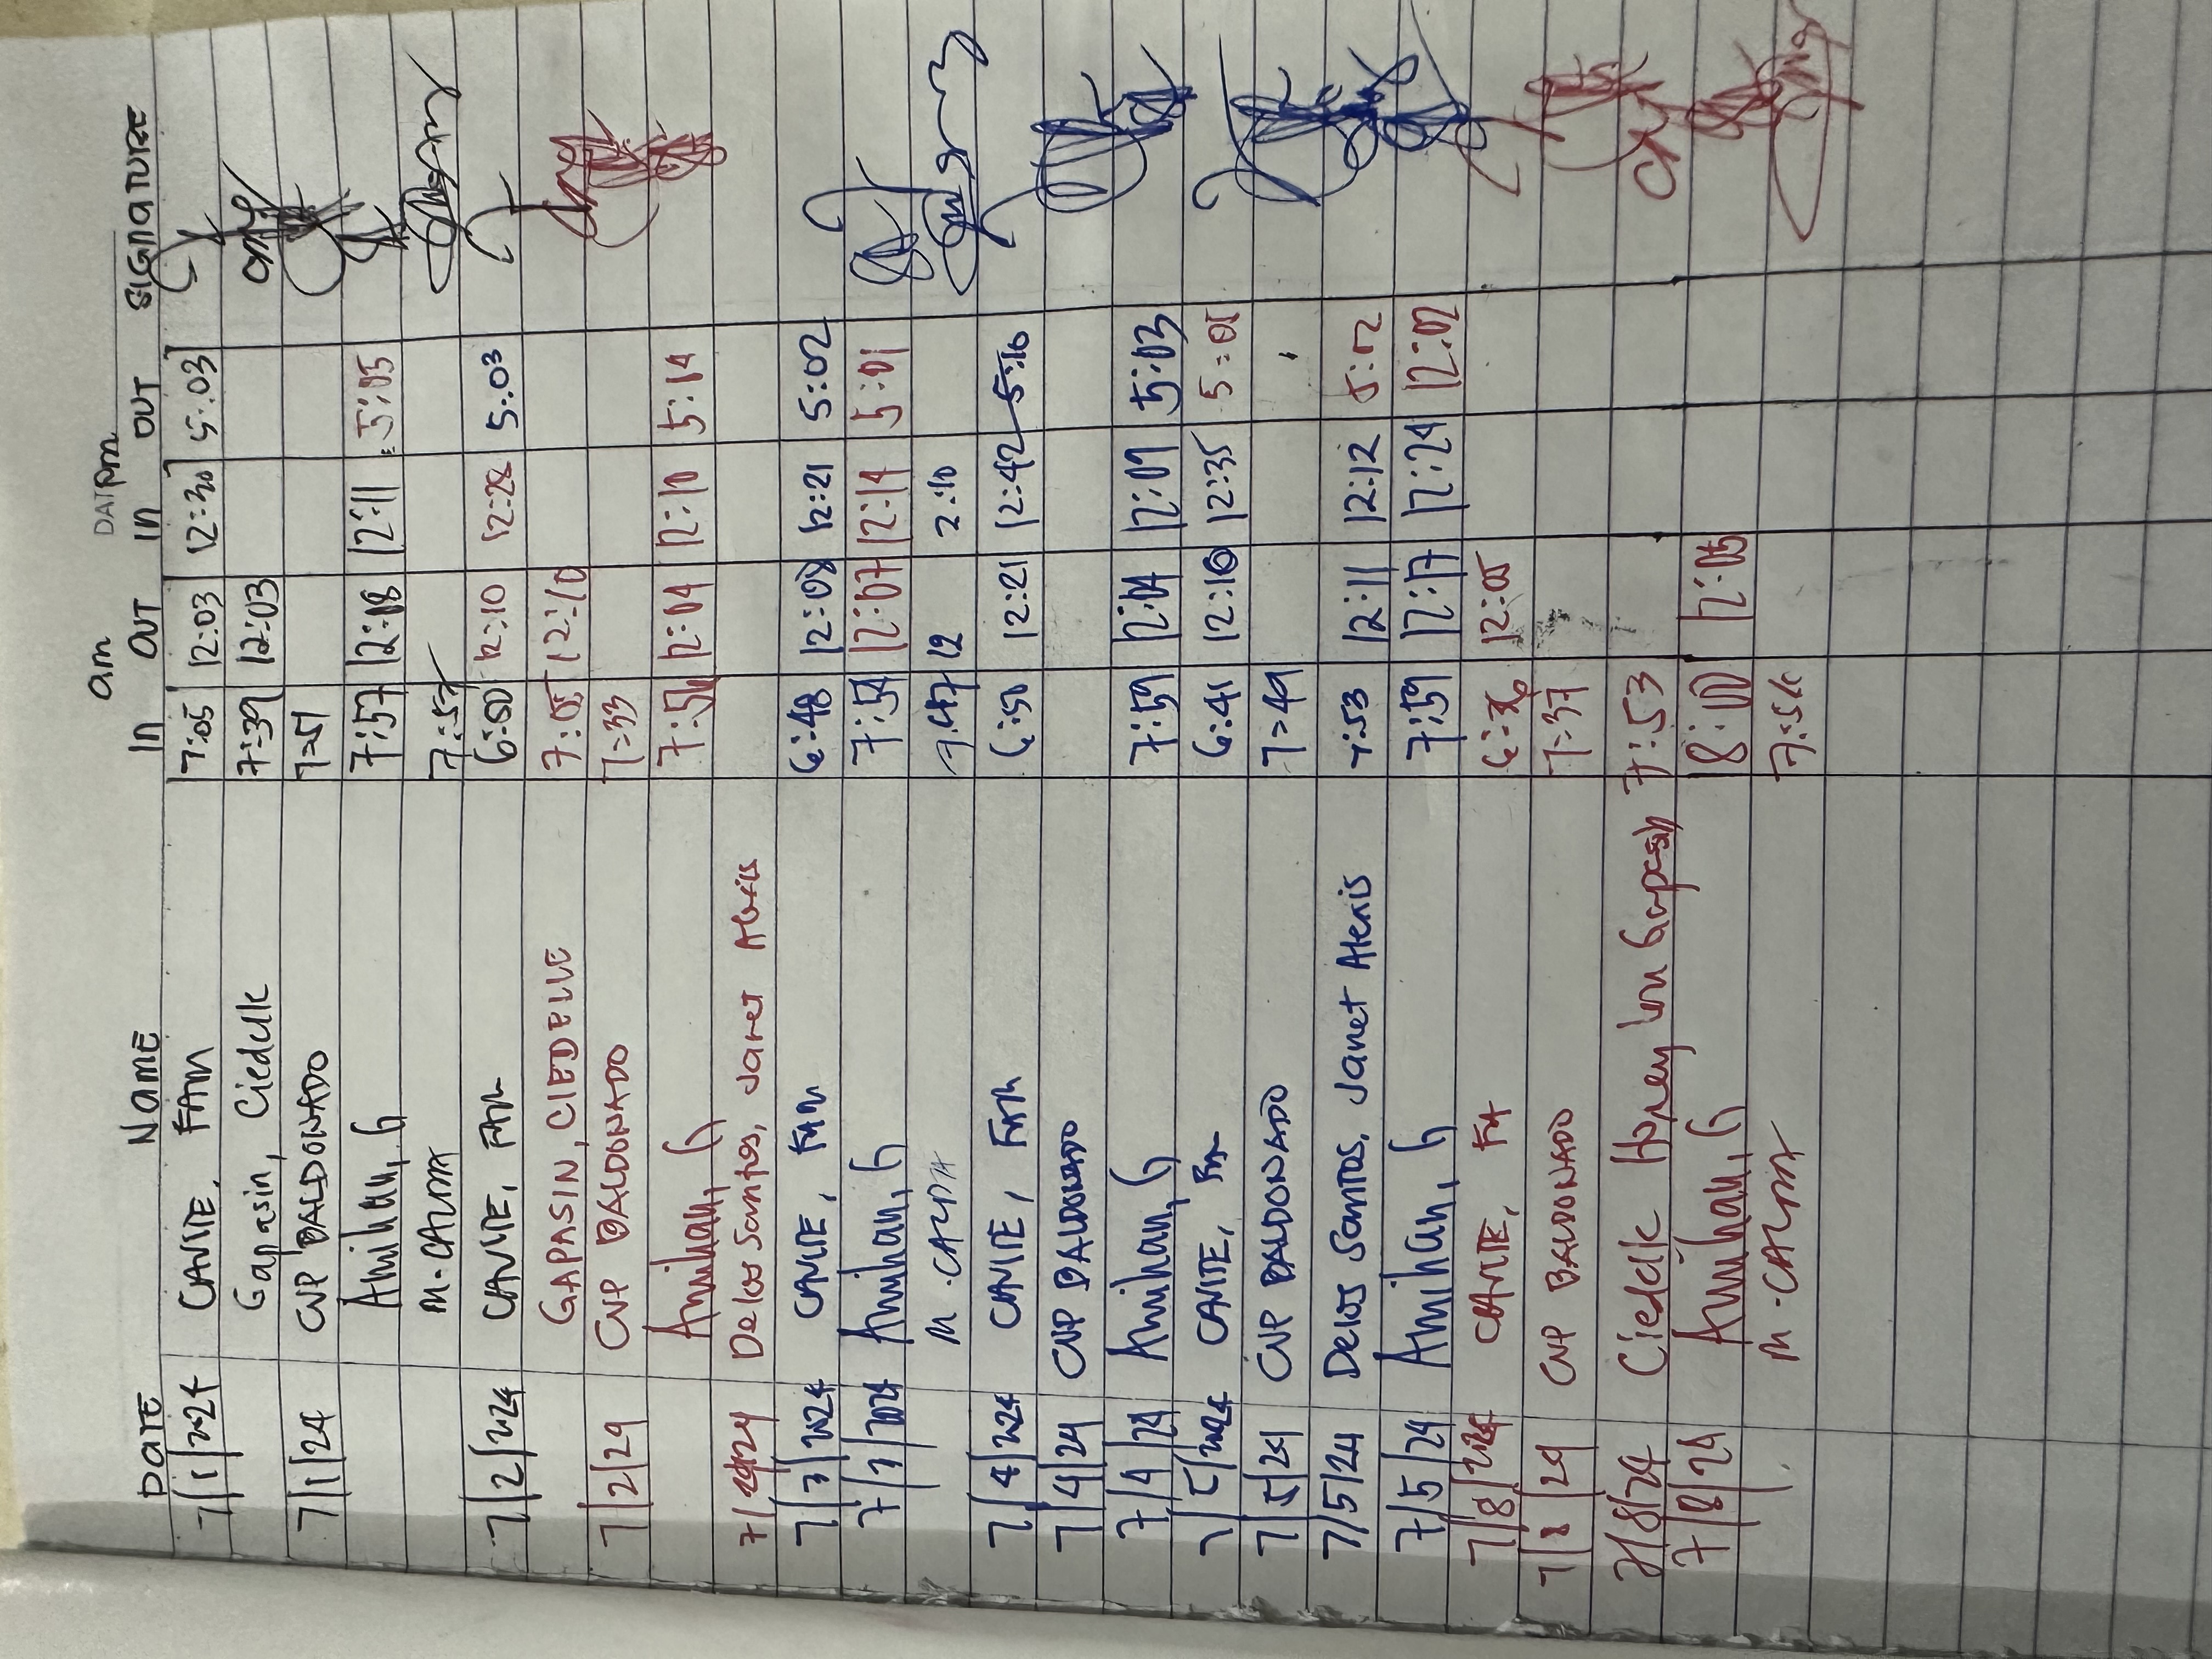 am DAT pm
Date Name In OUT In OUT SIGNATURE
7/1/2024 CAVITE, FAM 7:05 12:03 12:30 5:03
Gapasin, Ciedelle 7:39 12:03
7/1/24 CVP BALDONADO
Amihan, G 7:57 12:08 12:11 5:05
M. CALDA
7/2/2024 CAVITE, FAM 6:50 12:10 12:28 5:03
GAPASIN, CIEDELLE 7:05 12:10
7/2/24 CVP BALDONADO 7:33
Amihan, G 12:04 12:10 5:14
Delos Santos, Janet Alexis
7/3/2024 CAVITE, FAM 6:48 12:08 12:21 5:02
7/3/2024 Amihan, G 7:54 12:07 12:14 5:01
M. CALDA 7:47 12 2:10
7/4/2024 CAVITE, FAM 6:50 12:21 12:42 5:10
7/4/24 CVP BALDONADO
7/4/24 Amihan, G 7:59 12:04 12:09 5:03
7/5/2024 CAVITE, 6:41 12:10 12:35 5:01
7/5/24 CVP BALDONADO 7:49
7/5/24 Delos Santos, Janet Alexis 7:53 12:11 12:12 5:12
7/5/24 Amihan, G 7:59 12:17 12:24 12:02
7/8/2024 CAVITE, FA 12:05
7/8/24 CVP BALDONADO 7:37
7/8/24 Ciedelle Honey Lou Gapasin 7:53
7/8/24 Amihan, G 8:00 12:05
M. CALDA